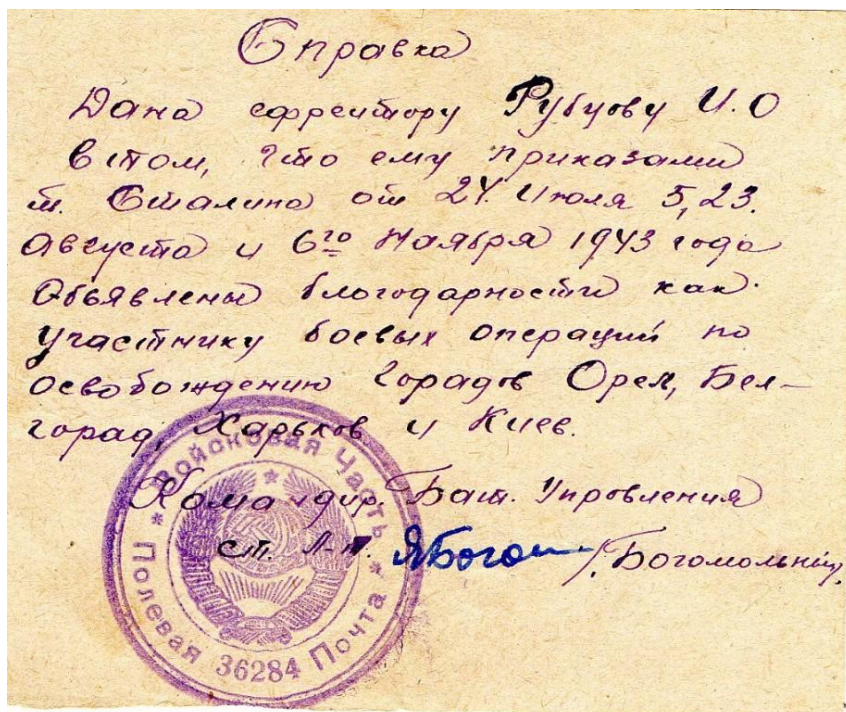 Справка
Дана ефрейтору Рубцову И.О
в том, что ему приказами
т. Сталина от 24. Июля 5,23.
Августа и 6го Наября 1943 года
Объявлены благодарности как
участнику боевых операций по
освобождению Горадов Орел, Бел-
город, Харьков и Киев.
Командир Бат. Управления
ст. Л-т. ЯБогом /Богомольниц/
Войсковая Часть
Полевая Почта
36284